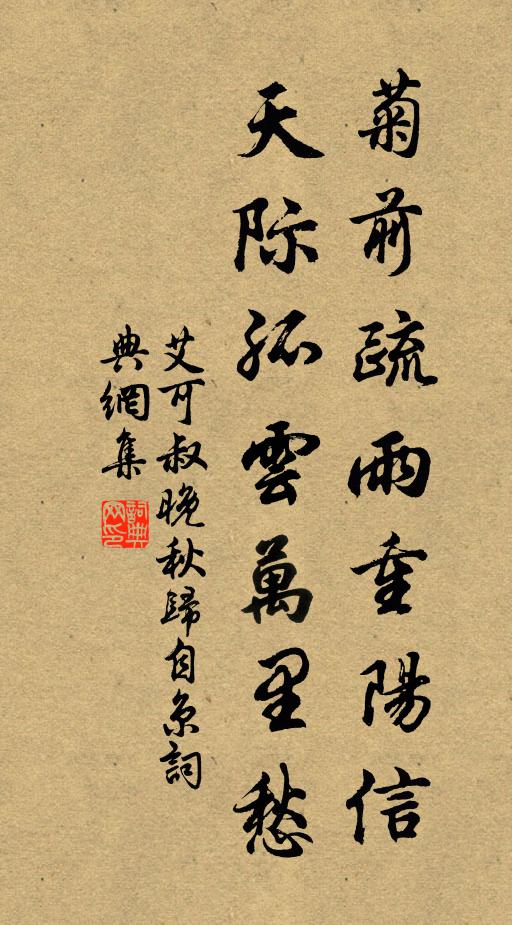 菊前疏雨重陽信
天际孤雲萬里愁
艾可叔晚秋歸自京詞
典網集
詞典网印